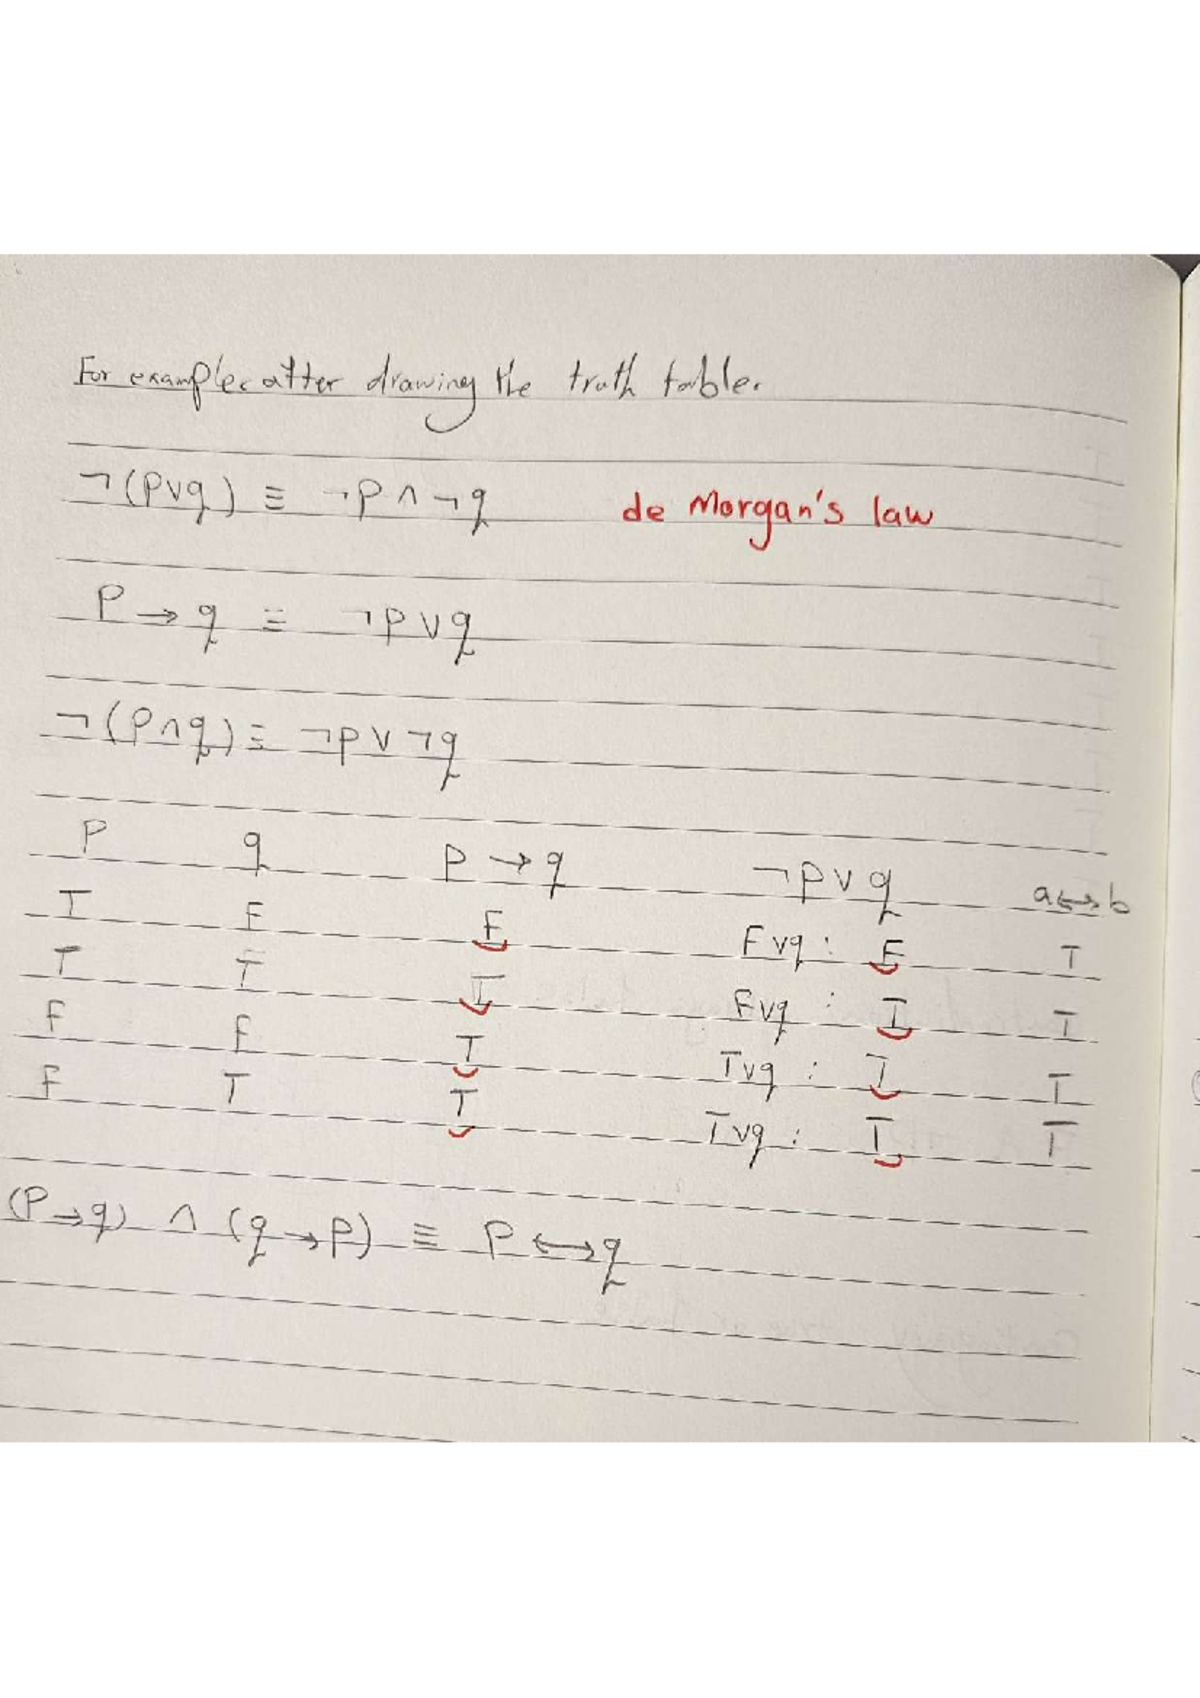 For example after drawing the truth table.
¬(p∨q) ≡ ¬p ∧ ¬q de Morgan's law
P → q ≡ ¬p∨q
¬(p∧q) ≡ ¬p∨¬q
P q P → q ¬p∨q a↔b
T F F F∨q : F T
T T T F∨q : T T
F F T T∨q : T T
F T T T∨q : T T
(P→q) ∧ (q→p) ≡ P ↔ q